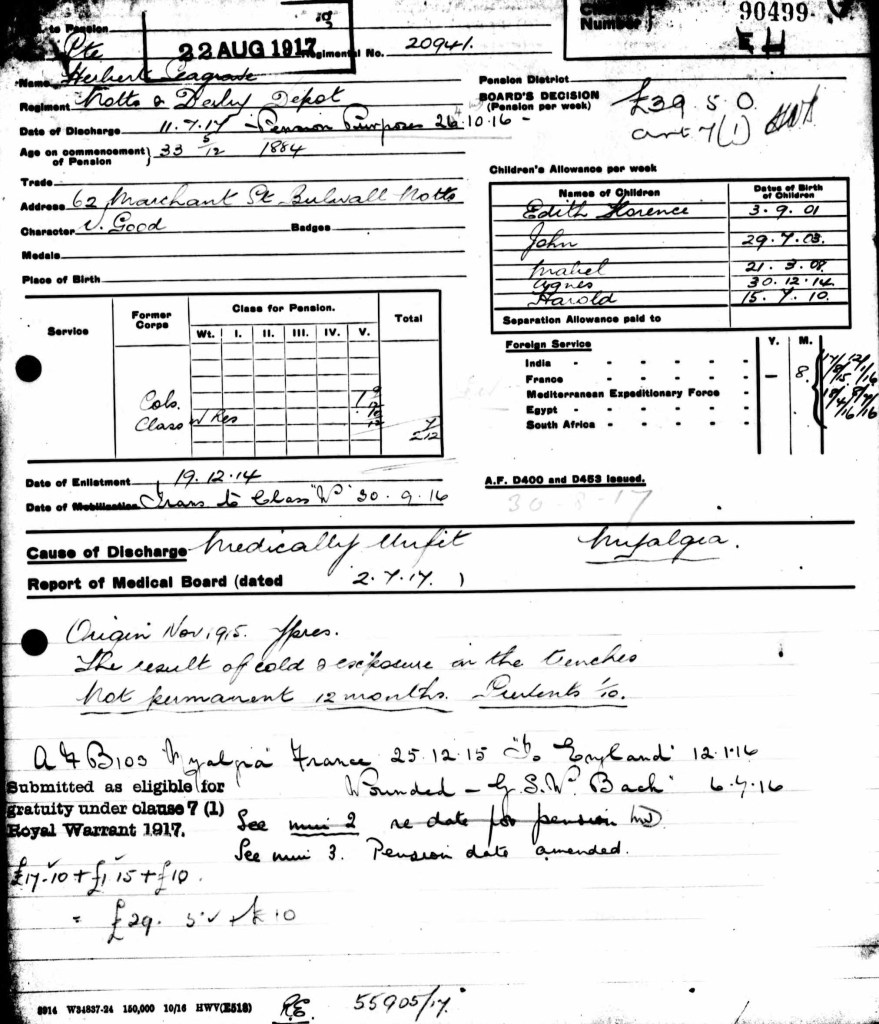 to Pension
Pte
22 AUG 1917
Regimental No. 20941.
Number 90499.
E H
Name Herbert Seagrave
Regiment Notts & Derby Depot
Date of Discharge 11.7.17 - Pension Purposes 26.10.16 -
Age on commencement of Pension } 33 5/12 1884
Trade
Address 62 Marchant St. Bulwall Notts
Character V. Good Badges
Medals
Place of Birth
Pension District
BOARD'S DECISION (Pension per week) £39. 5. 0.
art 7(1)
Children's Allowance per week
Names of Children Dates of Birth of Children
Edith Florence 3. 9. 01
John 29. 7. 03.
Mabel 21. 3. 08.
Agnes 30. 12. 14.
Harold 15. 7. 10.
Separation Allowance paid to
Service Former Corps Class for Pension. Total
Wt. I. II. III. IV. V.
Cols.
Class W Res
Foreign Service Y. M.
India
France - 8.
Mediterranean Expeditionary Force
Egypt
South Africa
Date of Enlistment 19.12.14
Date of Mobilisation Trans to Class "W" 30.9.16
A.F. D400 and D453 issued.
30-8-17
Cause of Discharge Medically Unfit Myalgia.
Report of Medical Board (dated 2.7.17. )
Origin Nov 1915. Ypres.
The result of cold & exposure in the trenches
Not permanent 12 months. Prudents 1/10.
A F B103 Myalgia France 25.12.15 "To England" 12.1.16
Wounded - G.S.W. Back" 6.7.16
Submitted as eligible for
gratuity under clause 7 (1)
Royal Warrant 1917.
See min 2 re date for pension
See min 3. Pension date amended.
£17-10 + £1 15 + £10.
= £29. 5 + £10
8914 W34837-24 150,000 10/16 HWV(E518)
R.E. 55905/17.